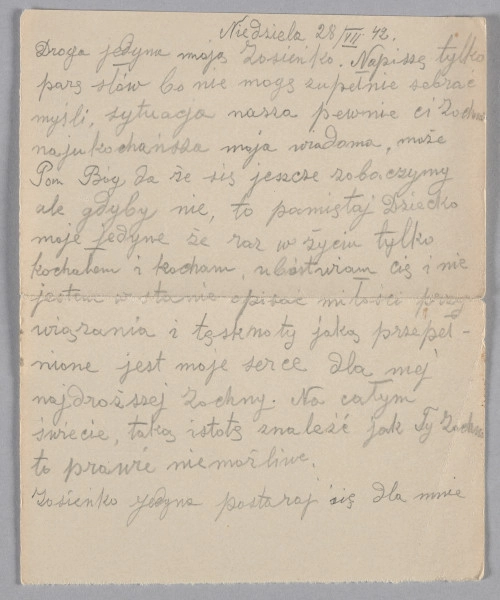 Niedziela 28/III 42.
Droga jedyna moja Zosieńko. Napiszę tylko
parę słów bo nie mogę zupełnie zebrać
myśli, sytuacja nasza pewnie ci Zochna
najukochańsza moja wiadoma, może
Pan Bóg da że się jeszcze zobaczymy
ale gdyby nie, to pamiętaj Dziecko
moje jedyne że raz w życiu tylko
kochałem i kocham, ubóstwiam cię i nie
jestem w stanie opisać miłości przy
wiązania i tęsknoty jaką przepeł-
nione jest moje serce dla mej
najdroższej Zochny. Na całym
świecie, taką istotę znaleźć jak Ty Zochna
to prawie niemożliwe.
Zosieńko jedyna postaraj się dla mnie